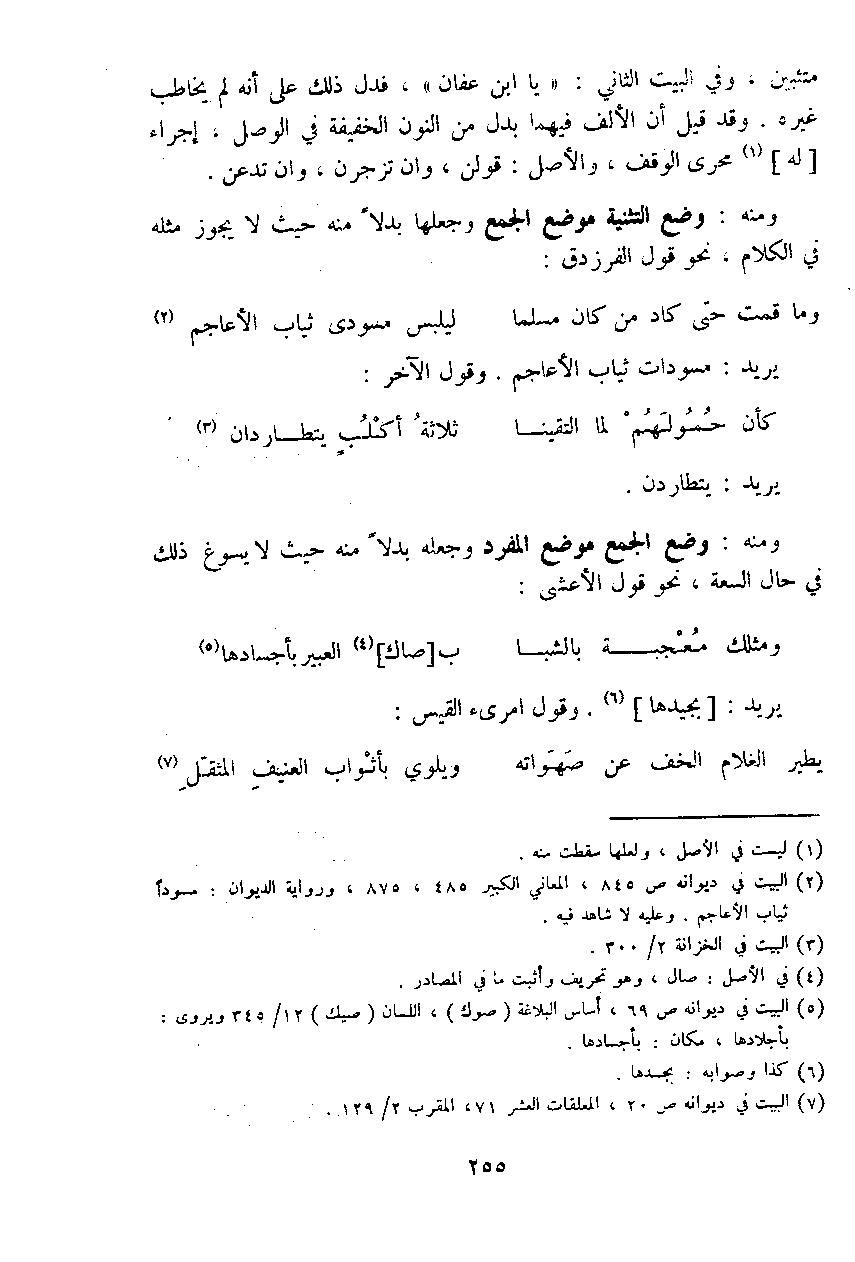 متثبين ، وفي البيت الثاني : « يا ابن عفان » ، فدل ذلك على أنه لم يخاطب
غيره . وقد قيل أن الألف فيهما بدل من النون الخفيفة في الوصل ، إجراء
[ له ] (١) مجرى الوقف ، والأصل : قولن ، وان تزجرن ، وان تدعن .
ومنه : وضع التثنية موضع الجمع وجعلها بدلاً منه حيث لا يجوز مثله
في الكلام ، نحو قول الفرزدق :
وما قمت حتّى كاد من كان مسلما ليلبس مسودى ثياب الأعاجم (٢)
يريد : مسودات ثياب الأعاجم . وقول الآخر :
كأن حُمُولَهُمْ لما التقينــا ثلاثةُ أكْلُبٍ يتطــاردان (٣)
يريد : يتطاردن .
ومنه : وضع الجمع موضع المفرد وجعله بدلاً منه حيث لا يسوغ ذلك
في حال السعة ، نحو قول الأعشى :
ومثلك مُعْجبــــة بالشبــا ب[صاك](٤) العبير بأجسادها(٥)
يريد : [ بجيدها ] (٦) . وقول امرىء القيس :
يطير الغلام الخف عن صَهَواته ويلوي بأثْواب العنيفِ المثقّلِ (٧)
(١) ليست في الأصل ، ولعلها سقطت منه .
(٢) البيت في ديوانه ص ٨٤٥ ، المعاني الكبير ٤٨٥ ، ٨٧٥ ، ورواية الديوان : مسوداً
ثياب الأعاجم . وعليه لا شاهد فيه .
(٣) البيت في الخزانة ٢/ ٣٠٠ .
(٤) في الأصل : صال ، وهو تحريف وأثبت ما في المصادر .
(٥) البيت في ديوانه ص ٦٩ ، أساس البلاغة ( صوك ) ، اللسان ( صيك ) ١٢/ ٣٤٥ ويروى :
بأجلادها ، مكان : بأجسادها .
(٦) كذا وصوابه : بجسدها .
(٧) البيت في ديوانه ص ٢٠ ، المعلقات العشر ٧١، المقرب ٢/ ١٢٩ .
٢٥٥